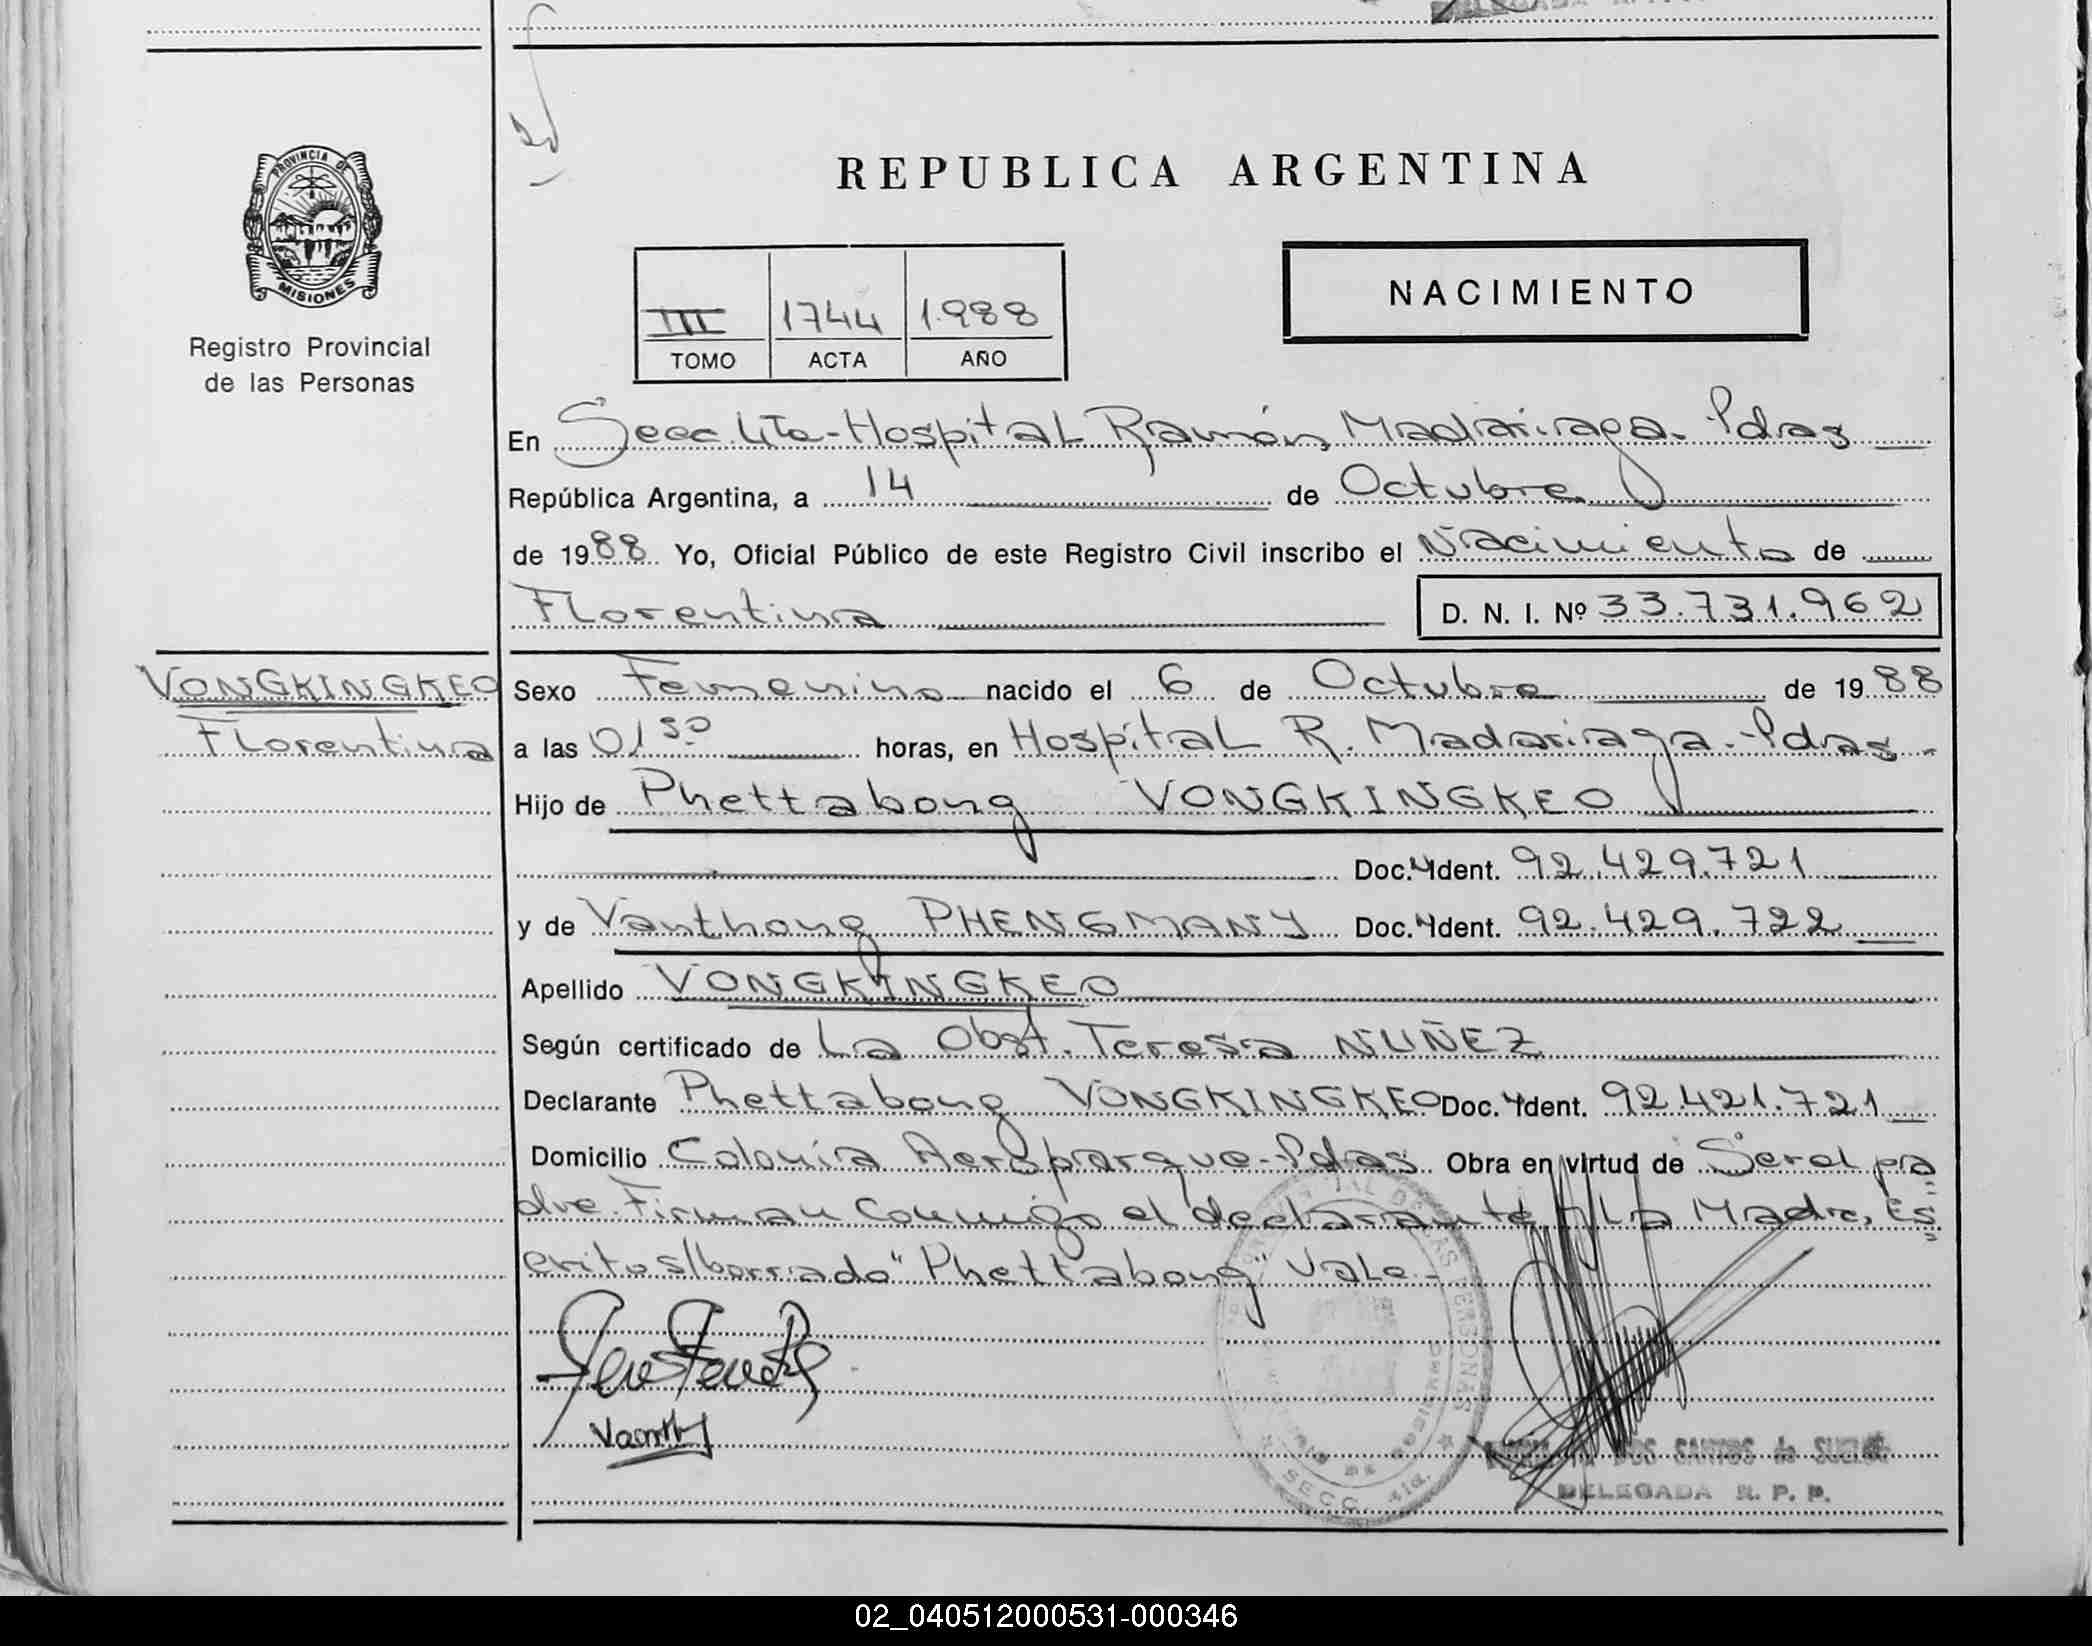 REPUBLICA ARGENTINA
PROVINCIA DE
MISIONES
Registro Provincial
de las Personas
III 1744 1.988
TOMO ACTA AÑO
NACIMIENTO
En Secc. 4ta - Hospital Ramón Madariaga - Pdas
República Argentina, a 14 de Octubre
de 1988 Yo, Oficial Público de este Registro Civil inscribo el Nacimiento de
Florentina
D. N. I. Nº 33.731.962
VONGKINGKEO
Florentina
Sexo Femenino nacido el 6 de Octubre de 1988
a las 01 50 horas, en Hospital R. Madariaga - Pdas -
Hijo de Phettabong VONGKINGKEO
Doc. Ident. 92.429.721
y de Vanthong PHENGMANY Doc. Ident. 92.429.722
Apellido VONGKINGKEO
Según certificado de La Obst. Teresa NUÑEZ
Declarante Phettabong VONGKINGKEO Doc. Ident. 92.421.721
Domicilio Colonia Aeroparque - Pdas Obra en virtud de Ser el pa
dre. Firman conmigo el declarante y La Madre, Es
crito s/borrado "Phettabong" Vale -
Vanth
SECC. 4ta.
DOS SANTOS de
DELEGADA R. P. P.
02_040512000531-000346